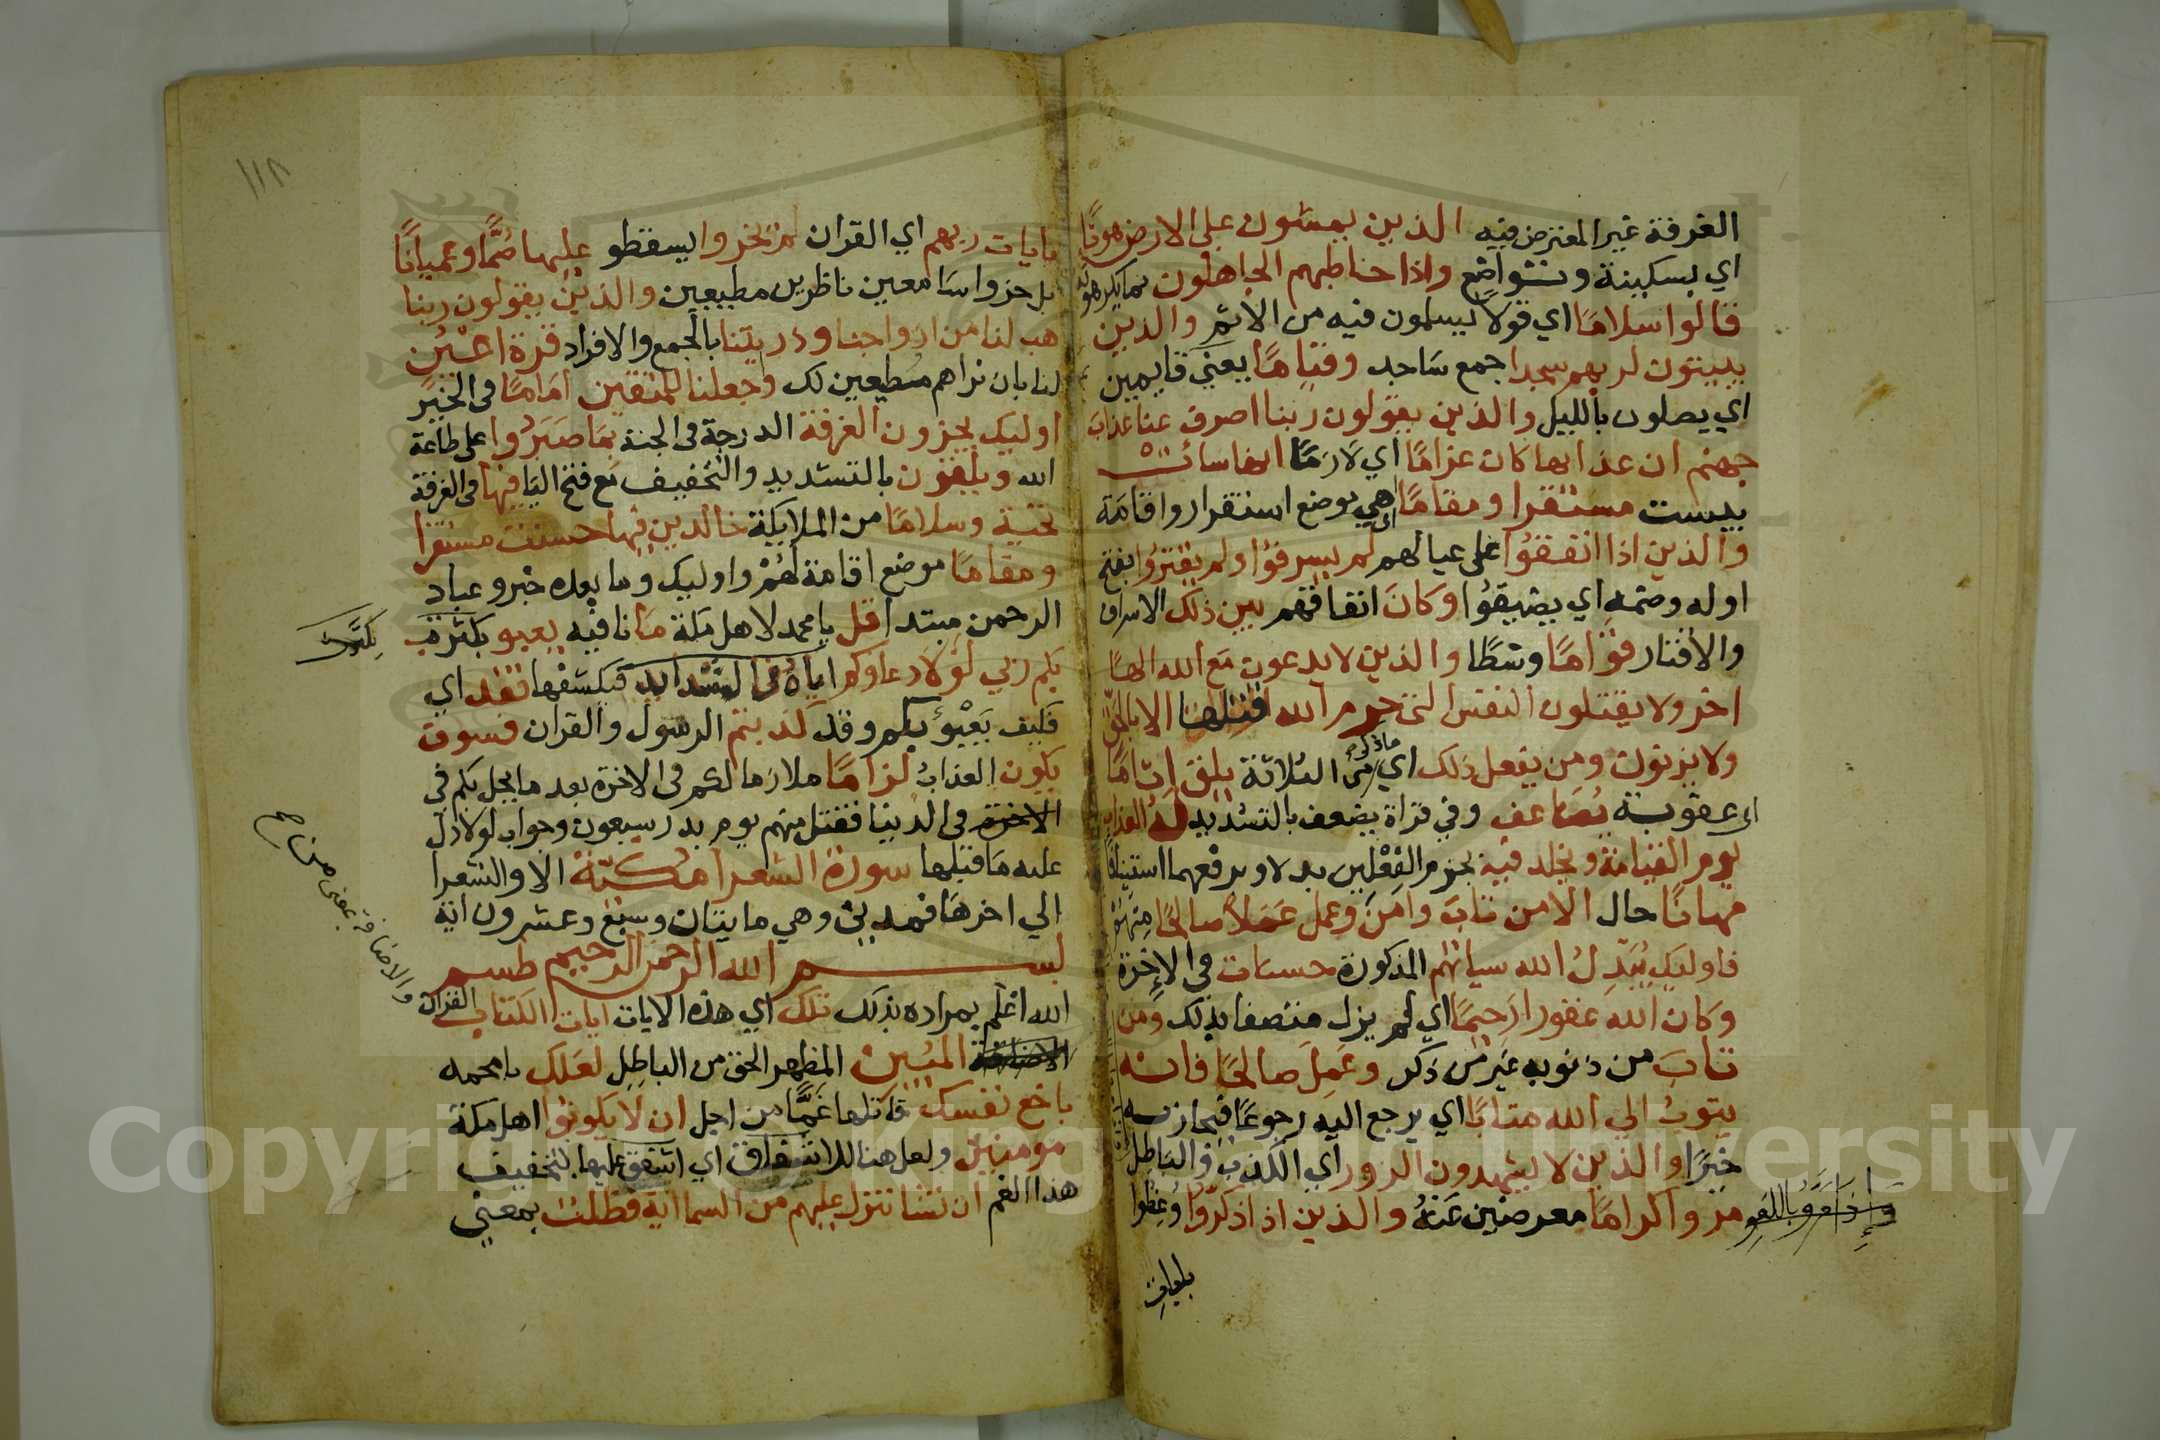 الغرفة غير المعترض فيه الذين يمشون على الارض هونًا
اي بسكينة وتواضع واذا خاطبهم الجاهلون بما يكرهونه
قالوا سلامًا اي قولا يسلمون فيه من الاثم والذين
يبيتون لربهم سجدا جمع ساجد وقيامًا يعني قايمين
اي يصلون بالليل والذين يقولون ربنا اصرف عنا عذاب
جهنم ان عذابها كان غرامًا اي لازمًا انها سائت
بيست مستقرا ومقامًا هي موضع استقرار واقامة
والذين اذا انفقوا على عيالهم لم يسرفوا ولم يقتروا بفتح
اوله وضمه اي يضيقوا وكان انفاقهم بين ذلك الاسراف
والاقتار قوامًا وسطًا والذين لا يدعون مع الله الهًا
اخر ولا يقتلون النفس التي حرم الله قتلها الا بالحق
ولا يزنون ومن يفعل ذلك اي ماذكر من الثلاثة يلق اثامًا
اي عقوبة يضاعف وفي قراة يضعف بالتشديد له العذاب
يوم القيامة ويخلد فيه بجزم الفعلين بدلا وبرفعهما استينافًا
مهانًا حال الا من تاب وامن وعمل عملاً صالحًا منهم
فاوليك يبدل الله سياتهم المذكورة حسنات في الاخرة
وكان الله غفورا رحيمًا اي لم يزل متصفا بذلك ومن
تاب من ذنوبه غير من ذكر وعمل صالحًا فانه
يتوب الى الله متابًا اي يرجع اليه رجوعًا فيجازيه
خيرًا والذين لا يشهدون الزور اي الكذب والباطل
واذا مروا باللغو مروا كرامًا معرضين عنه والذين اذا ذكروا وعظوا
بايات
١١٨
بايات ربهم اي القران لم يخروا يسقطو عليها صمًّا وعميانًا
بل خروا سامعين ناظرين مطيعين والذين يقولون ربنا
هب لنا من ازواجنا وذريتنا بالجمع والافراد قرة اعين
لنا بان نراهم مطيعين لك واجعلنا للمتقين امامًا في الخير
اوليك يجزون الغرفة الدرجة في الجنة بما صبروا على طاعة
الله ويلقون بالتشديد والتخفيف مع فتح اليا فيها في الغرفة
تحية وسلامًا من الملايكة خالدين فيها حسنت مستقرا
ومقامًا موضع اقامة لهم واوليك وما بعده خبر وعباد
الرحمن مبتدا قل يا محمد لاهل مكة ما نافيه يعبو يكترث
بكم ربي لولا دعاوكم اياه في الشدايد فيكشفها فقد اي
فكيف يعبؤ بكم وقد كذبتم الرسول والقران فسوف
يكون العذاب لزامًا ملازما لكم في الاخرة بعد ما يحل بكم في
الاخرة في الدنيا فقتل منهم يوم بدر سبعون وجواب لولا دل
عليه ما قبلها سورة الشعرا مكية الا والشعرا
الى اخرها فمدني وهي مايتان وسبع وعشرون اية
بسم الله الرحمن الرحيم طسم
الله اعلم بمراده بذلك تلك اي هذه الايات ايات الكتاب القران
والاضافة بمعنى من صح
المبين المظهر الحق من الباطل لعلك يا محمد
باخع نفسك قاتلها غمًّا من اجل ان لا يكونوا اهل مكة
مومنين ولعل هنا للاشفاق اي اشفق عليها بتخفيف
هذا الغم ان نشا ننزل عليهم من السما اية فظلت بمعني